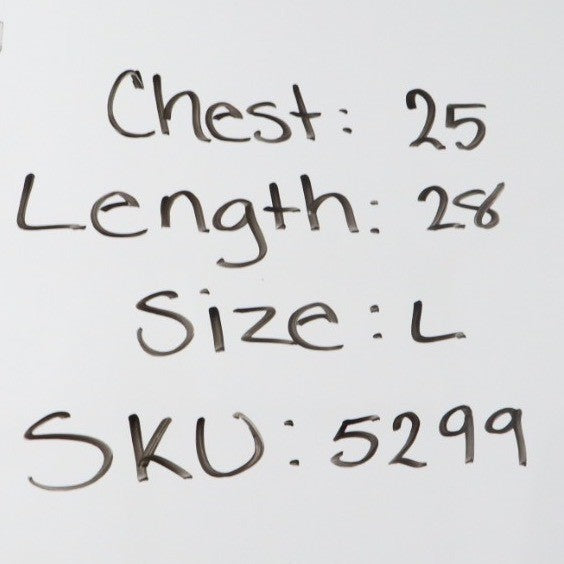 Chest: 25
Length: 28
Size: L
SKU: 5299